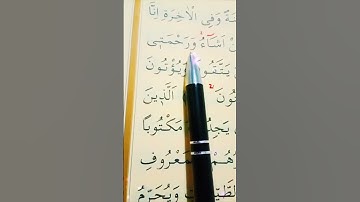 ةً وَفِي الْاٰخِرَةِ اِنَّا
اَشَٓاءُۚ وَرَحْمَت۪ي
يَتَّقُونَ وَيُؤْتُونَ
اَلَّذ۪ينَ
يَجِدُ مَكْتُوبًا
هُمْ بِالْمَعْرُوفِ
الطَّيِّبَاتِ وَيُحَرِّمُ